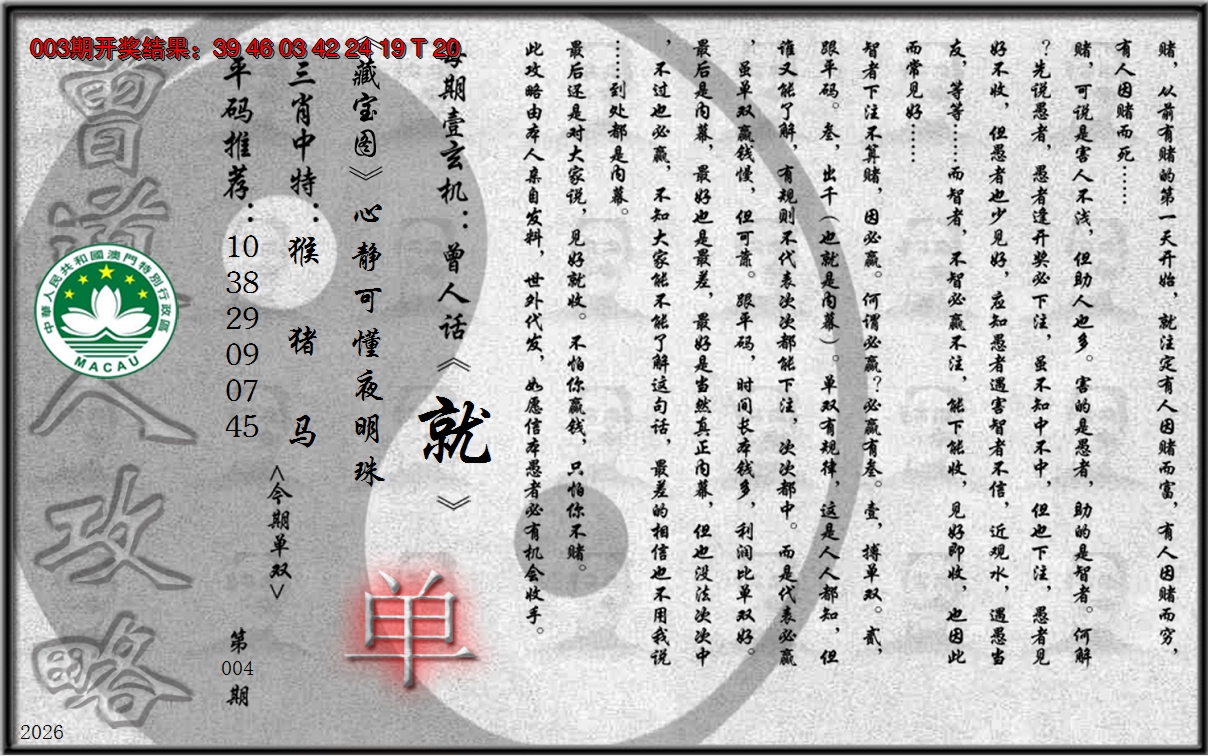 003期开奖结果：39 46 03 42 24 19 T 20
赌，从前有赌的第一天开始，就注定有人因赌而富，有人因赌而穷，
有人因赌而死……
赌，可说是害人不浅，但助人也多。害的是愚者，助的是智者。何解
？先说愚者，愚者逢开奖必下注，虽不知中不中，但也下注，愚者见
好不收，但愚者也少见好，应知愚者遇害智者不信，近观水，遇愚当
友，等等……而智者，不智必赢不注，能下能收，见好即收，也因此
而常见好……
智者下注不算赌，因必赢。何谓必赢？必赢有叁。壹，搏单双。贰，
跟平码。叁，出千（也就是内幕）。单双有规律，这是人人都知，但
谁又能了解，有规则不代表次次都能下注，次次都中。而是代表必赢
，虽单双赢钱慢，但可靠。跟平码，时间长本钱多，利润比单双好。
最后是内幕，最好也是最差，最好是当然真正内幕，但也没法次次中
，不过也必赢，不知大家能不能了解这句话，最差的相信也不用我说
……到处都是内幕。
最后还是对大家说，见好就收。不怕你赢钱，只怕你不赌。
此攻略由本人亲自发料，世外代发，如愿信本愚者必有机会收手。
每期壹玄机：曾人话《就》
《藏宝图》心静可懂夜明珠
三肖中特：猴 猪 马
<今期单双>
单
平码推荐：
10
38
29
09
07
45
第
004
期
曾道人攻略
中華人民共和國澳門特別行政區
MACAU
2026